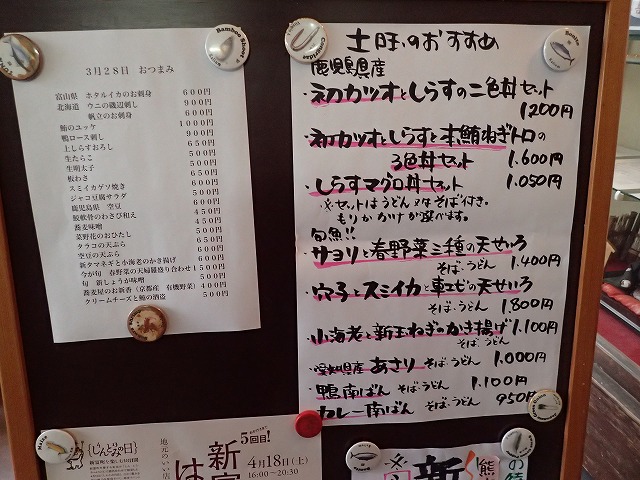 3月28日 おつまみ
富山県 ホタルイカのお刺身 600円
北海道 ウニの磯辺刺し 900円
帆立のお刺身 600円
鮪のユッケ 1000円
鴨ロース刺し 900円
上しらすおろし 650円
生たらこ 500円
生明太子 500円
板わさ 650円
スミイカゲソ焼き 600円
ジャコ豆腐サラダ 500円
鹿児島県 空豆 600円
鮫軟骨のわさび和え 450円
蕎麦味噌 450円
菜野花のおひたし 500円
タラコの天ぷら 650円
空豆の天ぷら 600円
新タマネギと小海老のかき揚げ 600円
今が旬 春野菜の天婦羅盛り合わせ 1500円
旬 新しょうが味噌 500円
蕎麦屋のお新香(京都産 有機野菜) 400円
クリームチーズと鰹の酒盗 500円
Bamboo Shoot
土日のおすすめ
鹿児島県産
・初カツオとしらすの二色丼セット
1200円
・初カツオとしらすと本鮪ねぎトロの
3色丼セット 1.600円
・しらすマグロ丼セット 1.050円
※セットはうどん又はそば付き。
もりかかけが選べます。
旬魚!!
・サヨリと春野菜三種の天せいろ
そば・うどん 1.400円
・穴子とスミイカと車エビの天せいろ
そば・うどん 1.800円
・小海老と新玉ねぎのかき揚げ 1.100円
そば・うどん
・愛知県産 あさり そば・うどん 1.000円
・鴨南ばん そば・うどん 1.100円
・カレー南ばん そば・うどん 950円
{じんとみの日}
地元のいい店
新富
は
5回目!
4月18日(土)
16:00～20:30
新
熊
の